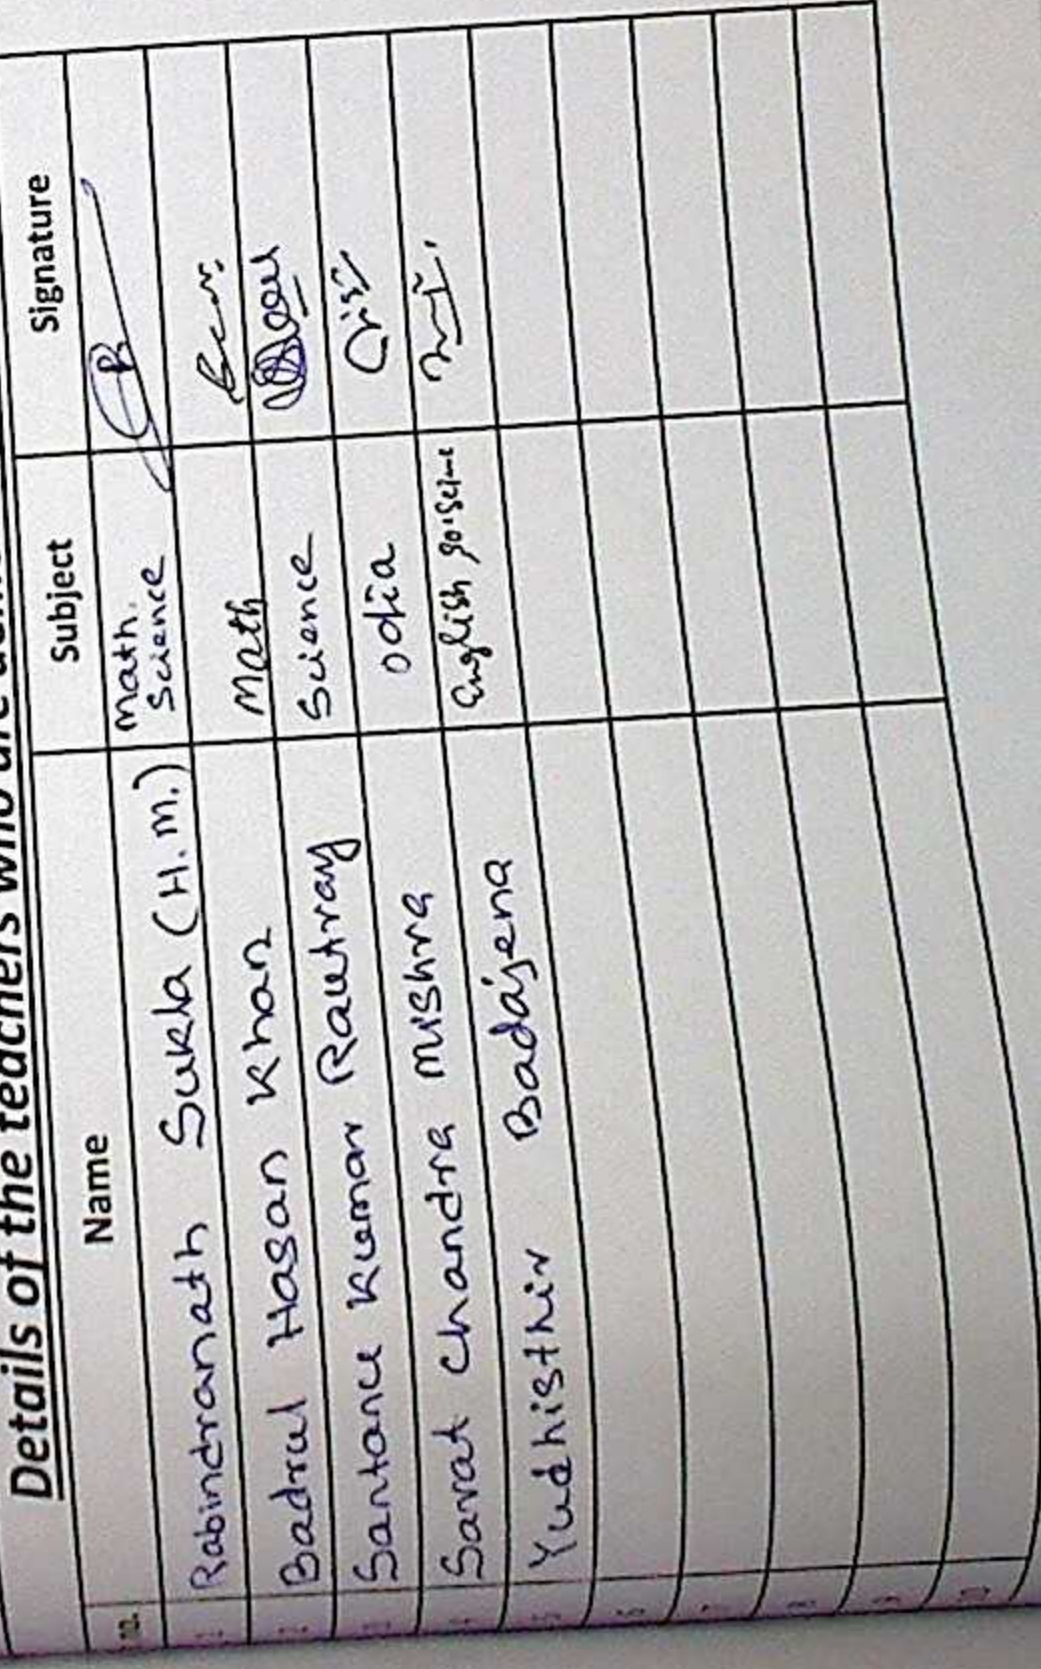 Details of the teachers who are
Name Subject Signature
1 Rabindranath Sukla (H.M.) Math. Science
2 Badrul Hasan Khan Math
3 Santanu Kumar Rautray Science
4 Sarat Chandra Mishra Odia
5 Yudhisthir Badajena English
6
7
8
9
10